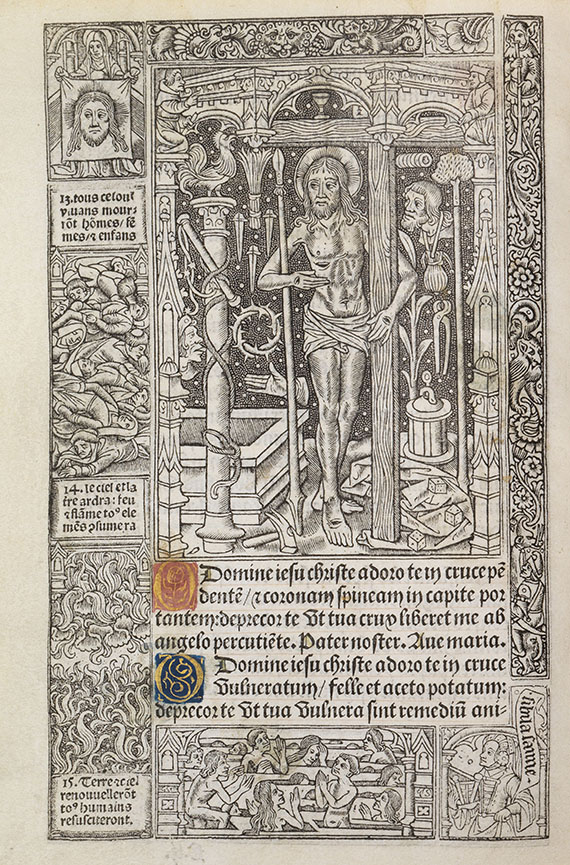 13. tous celoux
viuans mour-
rōt hōmes/ fē
mes/ ⁊ enfans
14. le ciel et la
tre ardra: feu
⁊ flāme toꝰ ele
mēs ꝯsumera
15. Terre ⁊ ciel
renouuellerōt
toꝰ humains
resusciteront.
Domine iesu christe adoro te in cruce pē
dentē/ ⁊ coronam spineam in capite por
tantem: deprecor te Vt tua crux liberet me ab
angelo percutiēte. Pater noster. Aue maria.
Domine iesu christe adoro te in cruce
Vulneratum/ felle et aceto potatum:
deprecor te Vt tua Vulnera sint remediū ani-